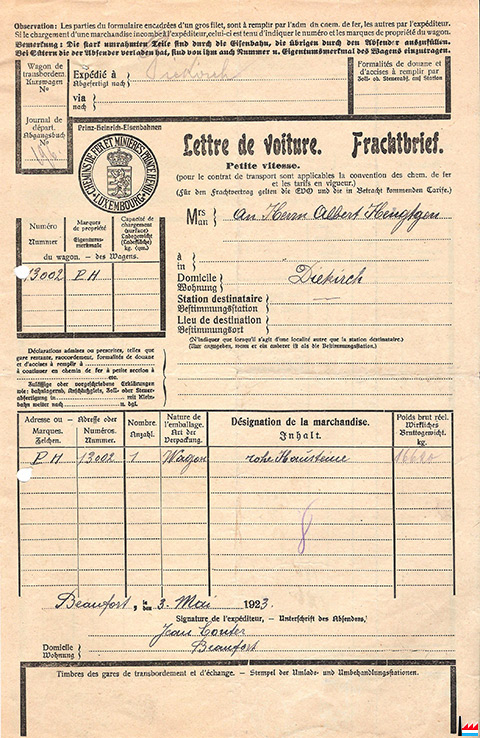 Observation: Les parties du formulaire encadrées d'un gros filet, sont à remplir par l'adm. d. chem. de fer, les autres par l'expéditeur.
Si le chargement d'une marchandise incombe à l'expéditeur, celui-ci est tenu d'indiquer le numéro et les marques de propriété du wagon.
Bemerkung: Die stark umrahmten Teile sind durch die Eisenbahn, die übrigen durch den Absender auszufüllen.
Bei Gütern die der Absender verladen hat, sind von ihm auch Nummer u. Eigentumsmerkmal des Wagens einzutragen.
Wagon de transbordem.
Kurswagen
No
Expédié à
Abgefertigt nach
Diekirch
via
nach
Formalités de douane et
d'accises à remplir par
Zoll- od. Steuerabf. auf Station
Journal de
départ.
Abgangsbuch
No
Prinz-Heinrich-Eisenbahnen
CHEMINS DE FER ET MINIERES PRINCE HENRI
LUXEMBOURG
Lettre de voiture. Frachtbrief.
Petite vitesse.
(pour le contrat de transport sont applicables la convention des chem. de fer
et les tarifs en vigueur.)
(Für den Frachtvertrag gelten die EVO und die in Betracht kommenden Tarife.)
Numéro
Nummer
Marques
de propriété
Eigentums-
merkmale
Capacité de
chargement
(surface)
Ladegewicht
(Ladefläche)
kg. (qm.)
du wagon. — des Wagens.
13002 P H
Mrs
Man
An Herrn Albert
à
in
Domicile
Wohnung
Diekirch
Station destinataire
Bestimmungsstation
Lieu de destination
Bestimmungsort
(N'indiquer que lorsqu'il s'agit d'une localité autre que la station destinataire.)
(Nur anzugeben, wenn er ein anderer ist als die Bestimmungsstation.)
Déclarations admises ou prescrites, telles que
gare restante, raccordeur, formalités de douane
et d'accises à remplir à
à continuer en chemin de fer à petite section à
etc.
Zulässige oder vorgeschriebene Erklärungen
wie: bahnlagernd, Anschlußgleis, Zoll- oder Steuer-
abfertigung in mit Klein-
bahn weiter nach u. dgl.
Adresse ou
Marques.
Zeichen.
Adresse oder
Numéros.
Nummer.
Nombre.
Anzahl.
Nature de
l'emballage.
Art der
Verpackung.
Désignation de la marchandise.
Inhalt.
Poids brut réel.
Wirkliches
Bruttogewicht.
kg.
P H 13002 1 Wagon rohe Hausteine
8
Beaufort, le/den 3. Mai 1923.
Signature de l'expéditeur, — Unterschrift des Absenders,
Jean Conter
Domicile
Wohnung
Beaufort
Timbres des gares de transbordement et d'échange. — Stempel der Umlade- und Umbehandlungsstationen.